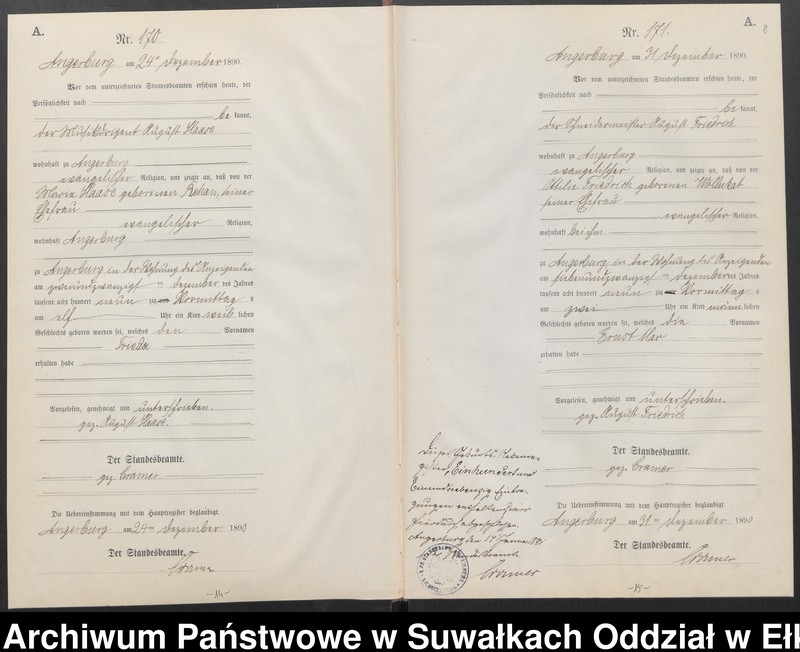 A.
Nr. 170
Angerburg am 24ten Dezember 1890.
Vor dem unterzeichneten Standesbeamten erschien heute, der
Persönlichkeit nach
be kannt,
der Musikdirigent August Haase
wohnhaft zu Angerburg
evangelischer Religion, und zeigte an, daß von der
Marie Haase geborenen seiner
Ehefrau
evangelischer Religion,
wohnhaft Angerburg
zu Angerburg in der Wohnung des Anzeigenden
am zweiundzwanzigsten Dezember des Jahres
tausend acht hundert neun zig Vormittag s
um elf Uhr ein Kind weib lichen
Geschlechts geboren worden sei, welches den Vornamen
Frieda
erhalten habe
Vorgelesen, genehmigt und unterschrieben.
gez. August Haase.
Der Standesbeamte.
gez. Cramer
Die Uebereinstimmung mit dem Hauptregister beglaubigt.
Angerburg am 24ten Dezember 1890
Der Standesbeamte.
Cramer
-14-
A.
8
Nr. 171.
Angerburg am 31 Dezember 1890.
Vor dem unterzeichneten Standesbeamten erschien heute, der
Persönlichkeit nach
be kannt,
der Schneidermeister August Friedrich
wohnhaft zu Angerburg
evangelischer Religion, und zeigte an, daß von der
Friedrich geborenen
seiner Ehefrau
evangelischer Religion,
wohnhaft bei ihm
zu Angerburg in der Wohnung des Anzeigenden
am siebenundzwanzigsten Dezember des Jahres
tausend acht hundert neun zig Vormittag s
um zwei Uhr ein Kind männ lichen
Geschlechts geboren worden sei, welches die Vornamen
Ernst Max
erhalten habe
Vorgelesen, genehmigt und unterschrieben.
gez. August Friedrich
Der Standesbeamte.
gez. Cramer
Die Uebereinstimmung mit dem Hauptregister beglaubigt.
Angerburg am 31ten Dezember 1890
Der Standesbeamte.
Cramer
-15-
Dieses Geburts-Neben-
register, Einhundert und
Einundsiebenzig Eintra-
gungen enthaltend wird
hierdurch abgeschlossen.
Angerburg den Januar
Der Standesbeamte
Cramer
Archiwum Państwowe w Suwałkach Oddział w Ełk